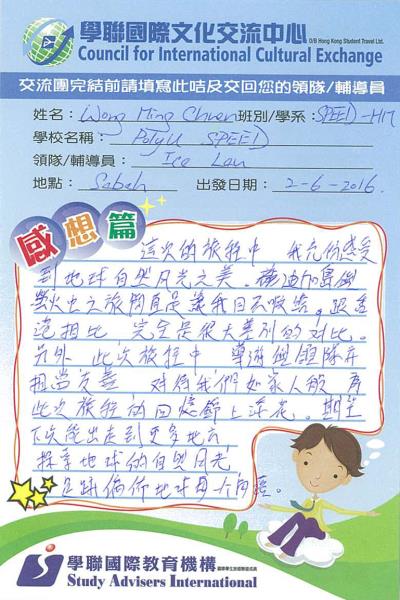 學聯國際文化交流中心 D/B Hong Kong Student Travel Ltd.
Council for International Cultural Exchange
交流團完結前請填寫此咭及交回您的領隊/輔導員
姓名: Wong Ming Chuen 班別/學系: SPEED-HTM
學校名稱: PolyU SPEED
領隊/輔導員: Ice Lau
地點: Sabah 出發日期: 2-6-2016
感想篇
這次的旅程中 我充份感受
到地球自然風光之美。
螢火虫之旅簡直是讓我目不暇給。跟香
港相比 完全是很大差別的對比。
另外 此次旅程中 導遊與領隊亦
相當友善 對待我們如家人般 為
此次旅程的回憶節上添花。期望
下次能出走到更多地方
探索地球的自然風光
足跡偏佈地球每个角落。
學聯國際教育機構
Study Advisers International